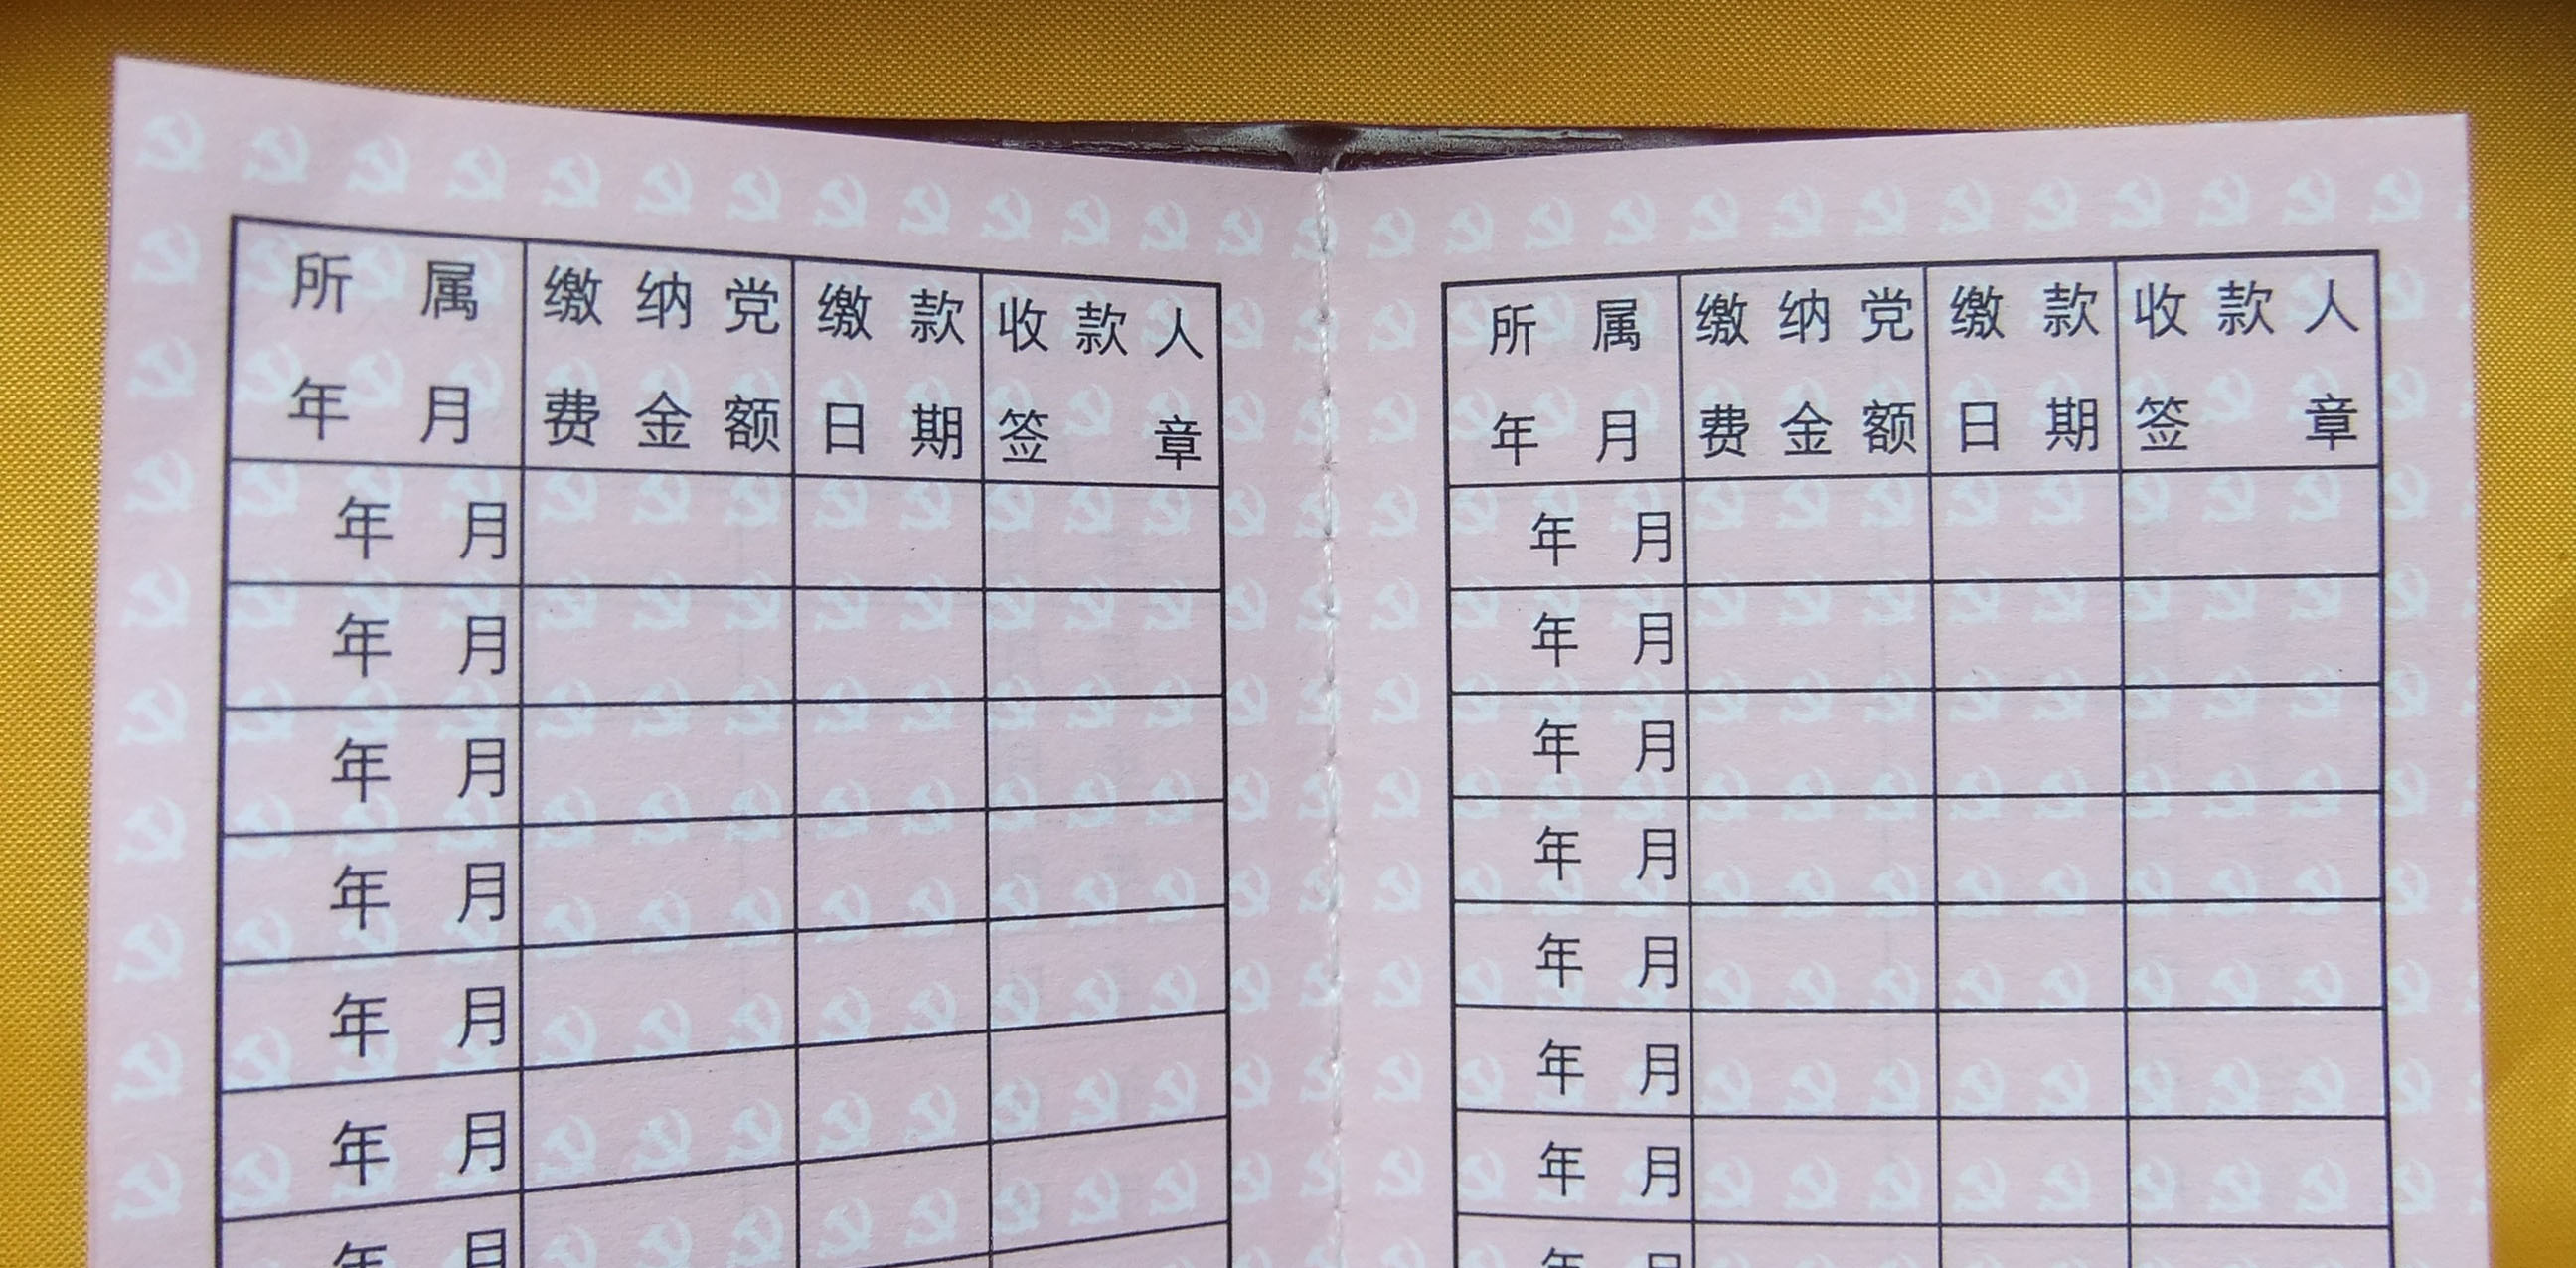 所属年月 缴纳党费金额 缴款日期 收款人签章
年 月
年 月
年 月
年 月
年 月
年 月
年 月
所属年月 缴纳党费金额 缴款日期 收款人签章
年 月
年 月
年 月
年 月
年 月
年 月
年 月
年 月